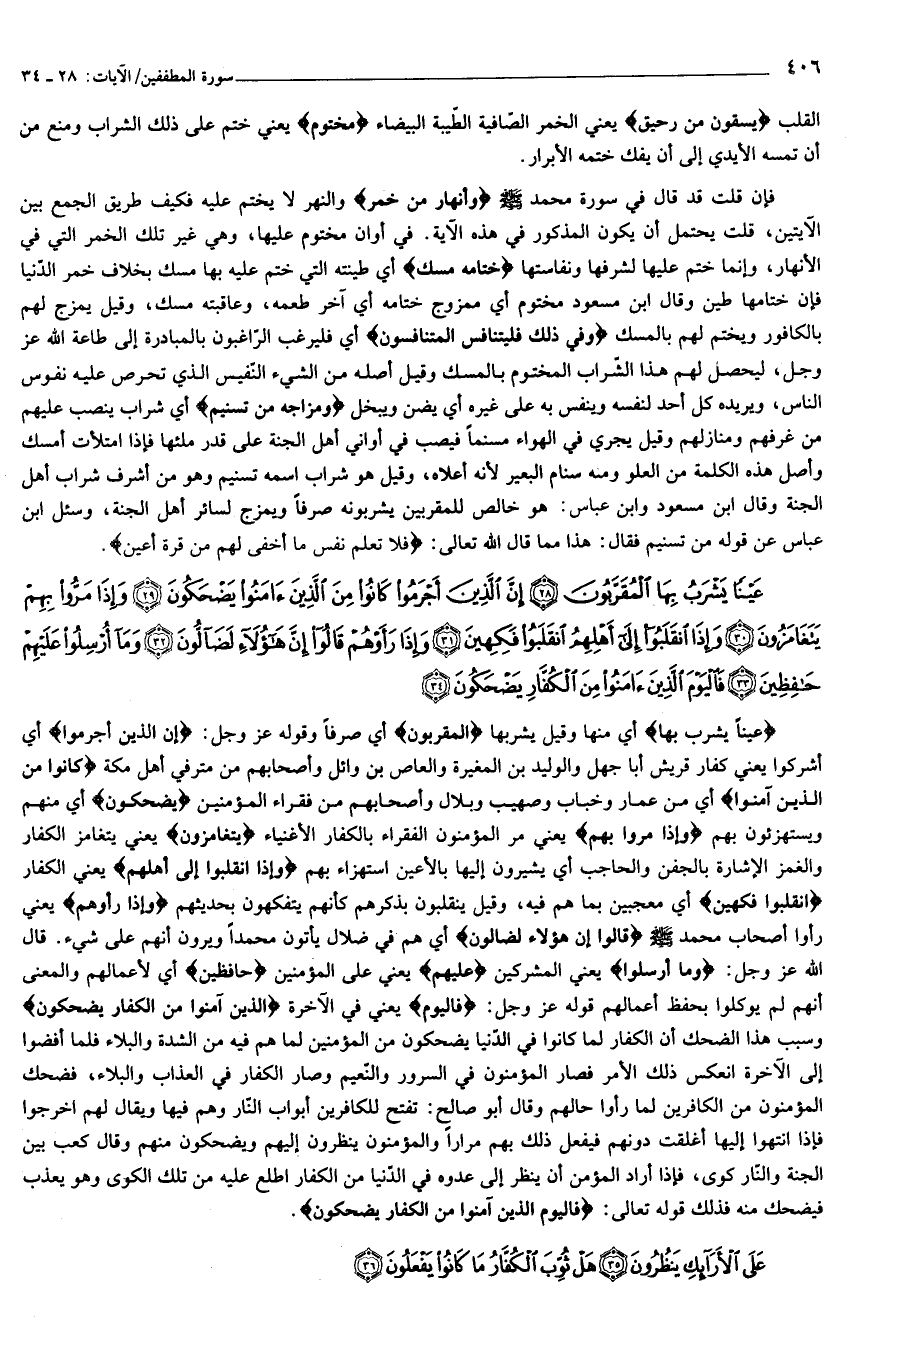 ٤٠٦ سورة المطففين/ الآيات: ٢٨ ـ ٣٤
القلب ﴿يسقون من رحيق﴾ يعني الخمر الصّافية الطّيبة البيضاء ﴿مختوم﴾ يعني ختم على ذلك الشراب ومنع من
أن تمسه الأيدي إلى أن يفك ختمه الأبرار.
فإن قلت قد قال في سورة محمد ﷺ ﴿وأنهار من خمر﴾ والنهر لا يختم عليه فكيف طريق الجمع بين
الآيتين، قلت يحتمل أن يكون المذكور في هذه الآية. في أوان مختوم عليها، وهي غير تلك الخمر التي في
الأنهار، وإنما ختم عليها لشرفها ونفاستها ﴿ختامه مسك﴾ أي طينته التي ختم عليه بها مسك بخلاف خمر الدّنيا
فإن ختامها طين وقال ابن مسعود مختوم أي ممزوج ختامه أي آخر طعمه، وعاقبته مسك، وقيل يمزج لهم
بالكافور ويختم لهم بالمسك ﴿وفي ذلك فليتنافس المتنافسون﴾ أي فليرغب الرّاغبون بالمبادرة إلى طاعة الله عز
وجل، ليحصل لهم هذا الشّراب المختوم بالمسك وقيل أصله من الشيء النّفيس الذي تحرص عليه نفوس
الناس، ويريده كل أحد لنفسه وينفس به على غيره أي يضن ويبخل ﴿ومزاجه من تسنيم﴾ أي شراب ينصب عليهم
من غرفهم ومنازلهم وقيل يجري في الهواء مسنماً فيصب في أواني أهل الجنة على قدر ملئها فإذا امتلأت أمسك
وأصل هذه الكلمة من العلو ومنه سنام البعير لأنه أعلاه، وقيل هو شراب اسمه تسنيم وهو من أشرف شراب أهل
الجنة وقال ابن مسعود وابن عباس: هو خالص للمقربين يشربونه صرفاً ويمزج لسائر أهل الجنة، وسئل ابن
عباس عن قوله من تسنيم فقال: هذا مما قال الله تعالى: ﴿فلا تعلم نفس ما أخفى لهم من قرة أعين﴾.
عَيْنًا يَشْرَبُ بِهَا ٱلْمُقَرَّبُونَ ﴿٢٨﴾ إِنَّ ٱلَّذِينَ أَجْرَمُوا۟ كَانُوا۟ مِنَ ٱلَّذِينَ ءَامَنُوا۟ يَضْحَكُونَ ﴿٢٩﴾ وَإِذَا مَرُّوا۟ بِهِمْ
يَتَغَامَزُونَ ﴿٣٠﴾ وَإِذَا ٱنقَلَبُوٓا۟ إِلَىٰٓ أَهْلِهِمُ ٱنقَلَبُوا۟ فَكِهِينَ ﴿٣١﴾ وَإِذَا رَأَوْهُمْ قَالُوٓا۟ إِنَّ هَـٰٓؤُلَآءِ لَضَآلُّونَ ﴿٣٢﴾ وَمَآ أُرْسِلُوا۟ عَلَيْهِمْ
حَـٰفِظِينَ ﴿٣٣﴾ فَٱلْيَوْمَ ٱلَّذِينَ ءَامَنُوا۟ مِنَ ٱلْكُفَّارِ يَضْحَكُونَ ﴿٣٤﴾
﴿عيناً يشرب بها﴾ أي منها وقيل يشربها ﴿المقربون﴾ أي صرفاً وقوله عز وجل: ﴿إن الذين أجرموا﴾ أي
أشركوا يعني كفار قريش أبا جهل والوليد بن المغيرة والعاص بن وائل وأصحابهم من مترفي أهل مكة ﴿كانوا من
الذين آمنوا﴾ أي من عمار وخباب وصهيب وبلال وأصحابهم من فقراء المؤمنين ﴿يضحكون﴾ أي منهم
ويستهزئون بهم ﴿وإذا مروا بهم﴾ يعني مر المؤمنون الفقراء بالكفار الأغنياء ﴿يتغامزون﴾ يعني يتغامز الكفار
والغمز الإشارة بالجفن والحاجب أي يشيرون إليها بالأعين استهزاء بهم ﴿وإذا انقلبوا إلى أهلهم﴾ يعني الكفار
﴿انقلبوا فكهين﴾ أي معجبين بما هم فيه، وقيل ينقلبون بذكرهم كأنهم يتفكهون بحديثهم ﴿وإذا رأوهم﴾ يعني
رأوا أصحاب محمد ﷺ ﴿قالوا إن هؤلاء لضالون﴾ أي هم في ضلال يأتون محمداً ويرون أنهم على شيء. قال
الله عز وجل: ﴿وما أرسلوا﴾ يعني المشركين ﴿عليهم﴾ يعني على المؤمنين ﴿حافظين﴾ أي لأعمالهم والمعنى
أنهم لم يوكلوا بحفظ أعمالهم قوله عز وجل: ﴿فاليوم﴾ يعني في الآخرة ﴿الذين آمنوا من الكفار يضحكون﴾
وسبب هذا الضحك أن الكفار لما كانوا في الدّنيا يضحكون من المؤمنين لما هم فيه من الشدة والبلاء فلما أفضوا
إلى الآخرة انعكس ذلك الأمر فصار المؤمنون في السرور والنّعيم وصار الكفار في العذاب والبلاء، فضحك
المؤمنون من الكافرين لما رأوا حالهم وقال أبو صالح: تفتح للكافرين أبواب النّار وهم فيها ويقال لهم اخرجوا
فإذا انتهوا إليها أغلقت دونهم فيفعل ذلك بهم مراراً والمؤمنون ينظرون إليهم ويضحكون منهم وقال كعب بين
الجنة والنّار كوى، فإذا أراد المؤمن أن ينظر إلى عدوه في الدّنيا من الكفار اطلع عليه من تلك الكوى وهو يعذب
فيضحك منه فذلك قوله تعالى: ﴿فاليوم الذين آمنوا من الكفار يضحكون﴾.
عَلَى ٱلْأَرَآئِكِ يَنظُرُونَ ﴿٣٥﴾ هَلْ ثُوِّبَ ٱلْكُفَّارُ مَا كَانُوا۟ يَفْعَلُونَ ﴿٣٦﴾